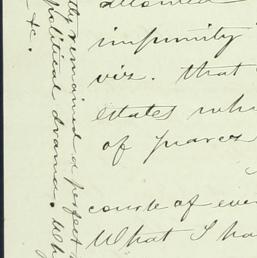 allowed
impunity
viz. that
estates wh
of
course of eve
What I ha
tly remained a perfect
political drama. Wh
&c.